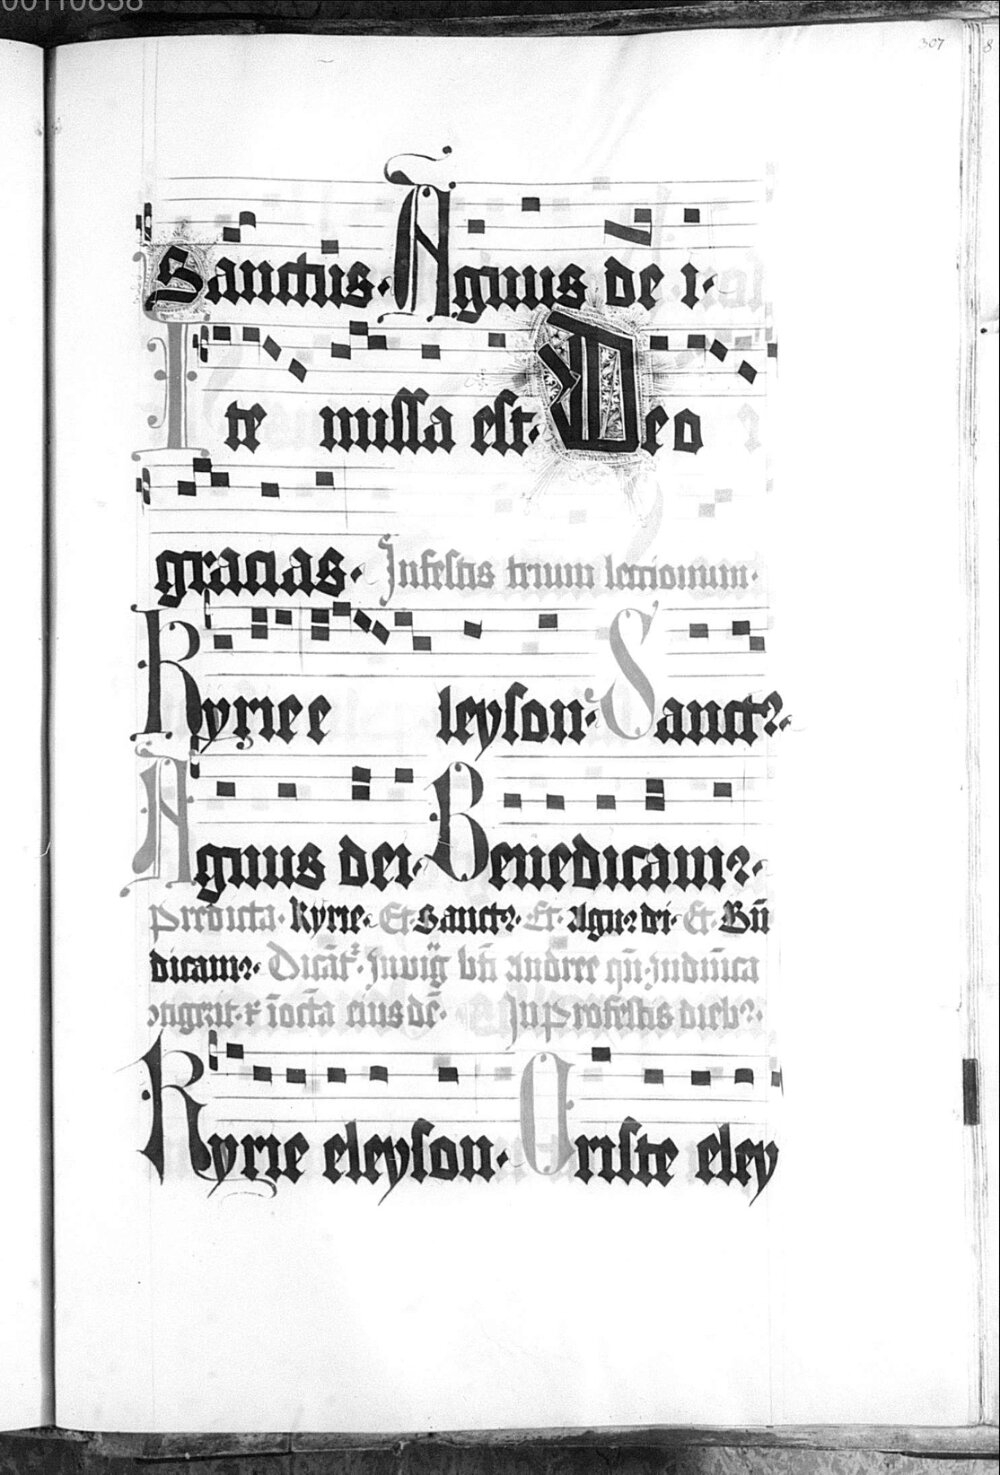 00110838
307
8
Sanctus· Agnus de i·
Ite missa est· Deo
gracias· Infestis trium lectionum·
Kyrie e leyson· Sanctꝰ·
Agnus dei· Benedicamꝰ·
Predicta· Kyrie· Et Sanctꝰ· Et· Agnꝰ dei· Et· Bn̄
dicamꝰ· bn̄ andree qn̄
eius In profestis diebꝰ·
Kyrie eleyson· Criste eley